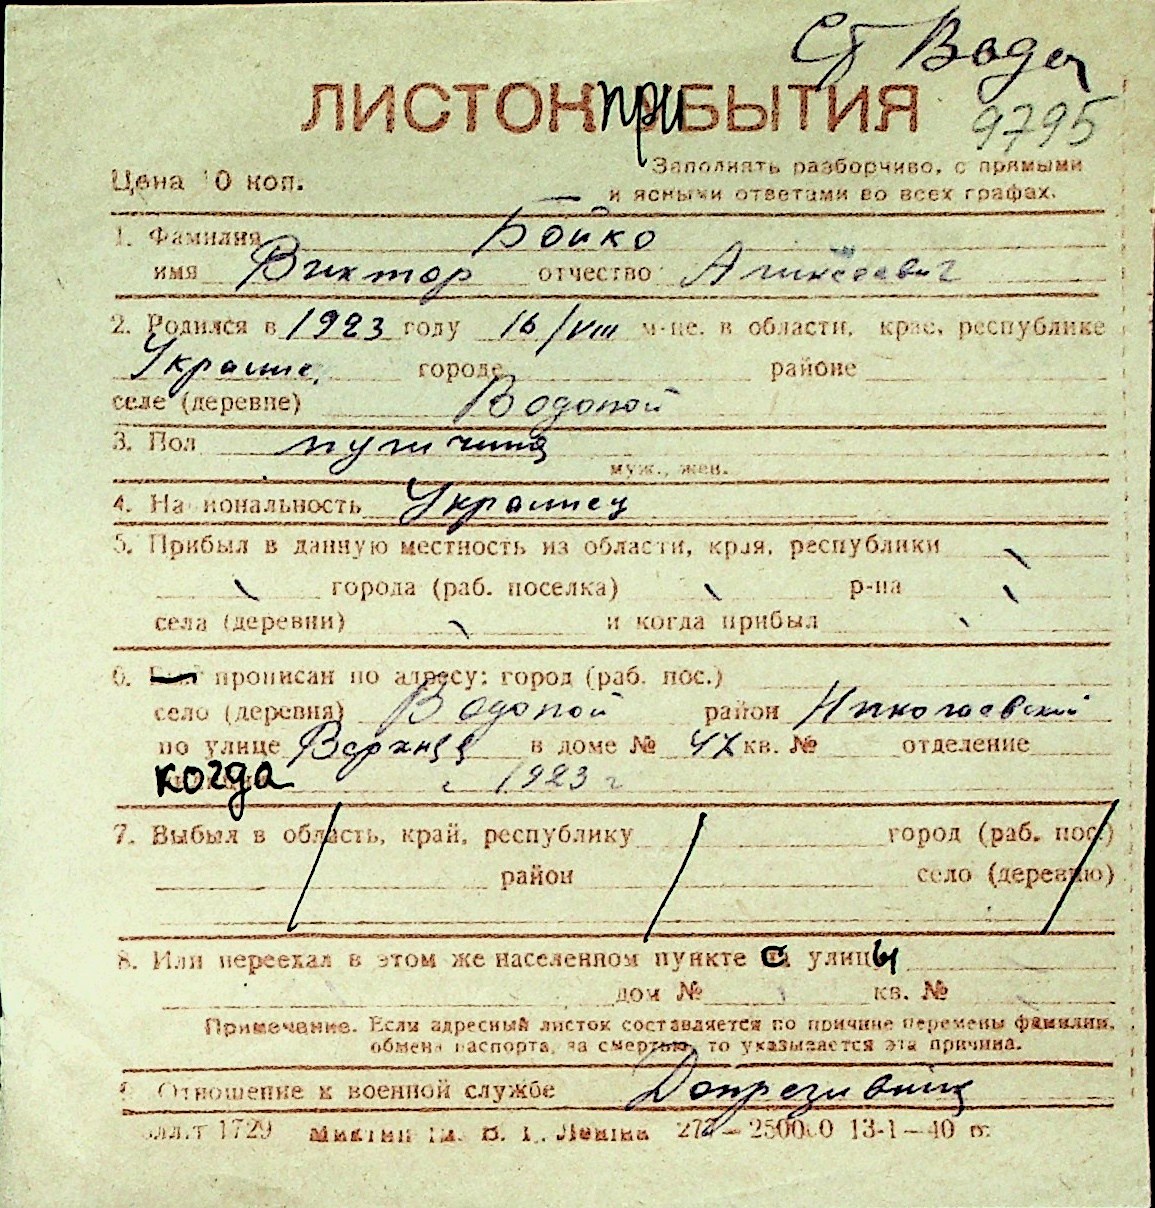 Ст Водоп
ЛИСТОК ПРИБЫТИЯ
9795
Цена 10 коп.
Заполнять разборчиво, с прямыми
и ясными ответами во всех графах.
1. Фамилия Бойко
имя Виктор отчество Алексеевич
2. Родился в 1923 году 16/VIII м-це. в области, крае, республике
Украине городе районе
селе (деревне) Водопой
3. Пол мужчина
муж., жен.
4. Национальность Украинец
5. Прибыл в данную местность из области, края, республики
города (раб. поселка) р-на
села (деревни) и когда прибыл
6. прописан по адресу: город (раб. пос.)
село (деревня) Водопой район Николаевский
по улице Верхняя в доме № 47 кв. № отделение
когда с 1923 г
7. Выбыл в область, край, республику город (раб. пос.)
район село (деревню)
8. Или переехал в этом же населенном пункте с улицы
дом № кв. №
Примечание. Если адресный листок составляется по причине перемены фамилии,
обмена паспорта, за смертью, то указывается эта причина.
9. Отношение к военной службе Допризивник
1729 Ленина 25000 13-1-40 г.